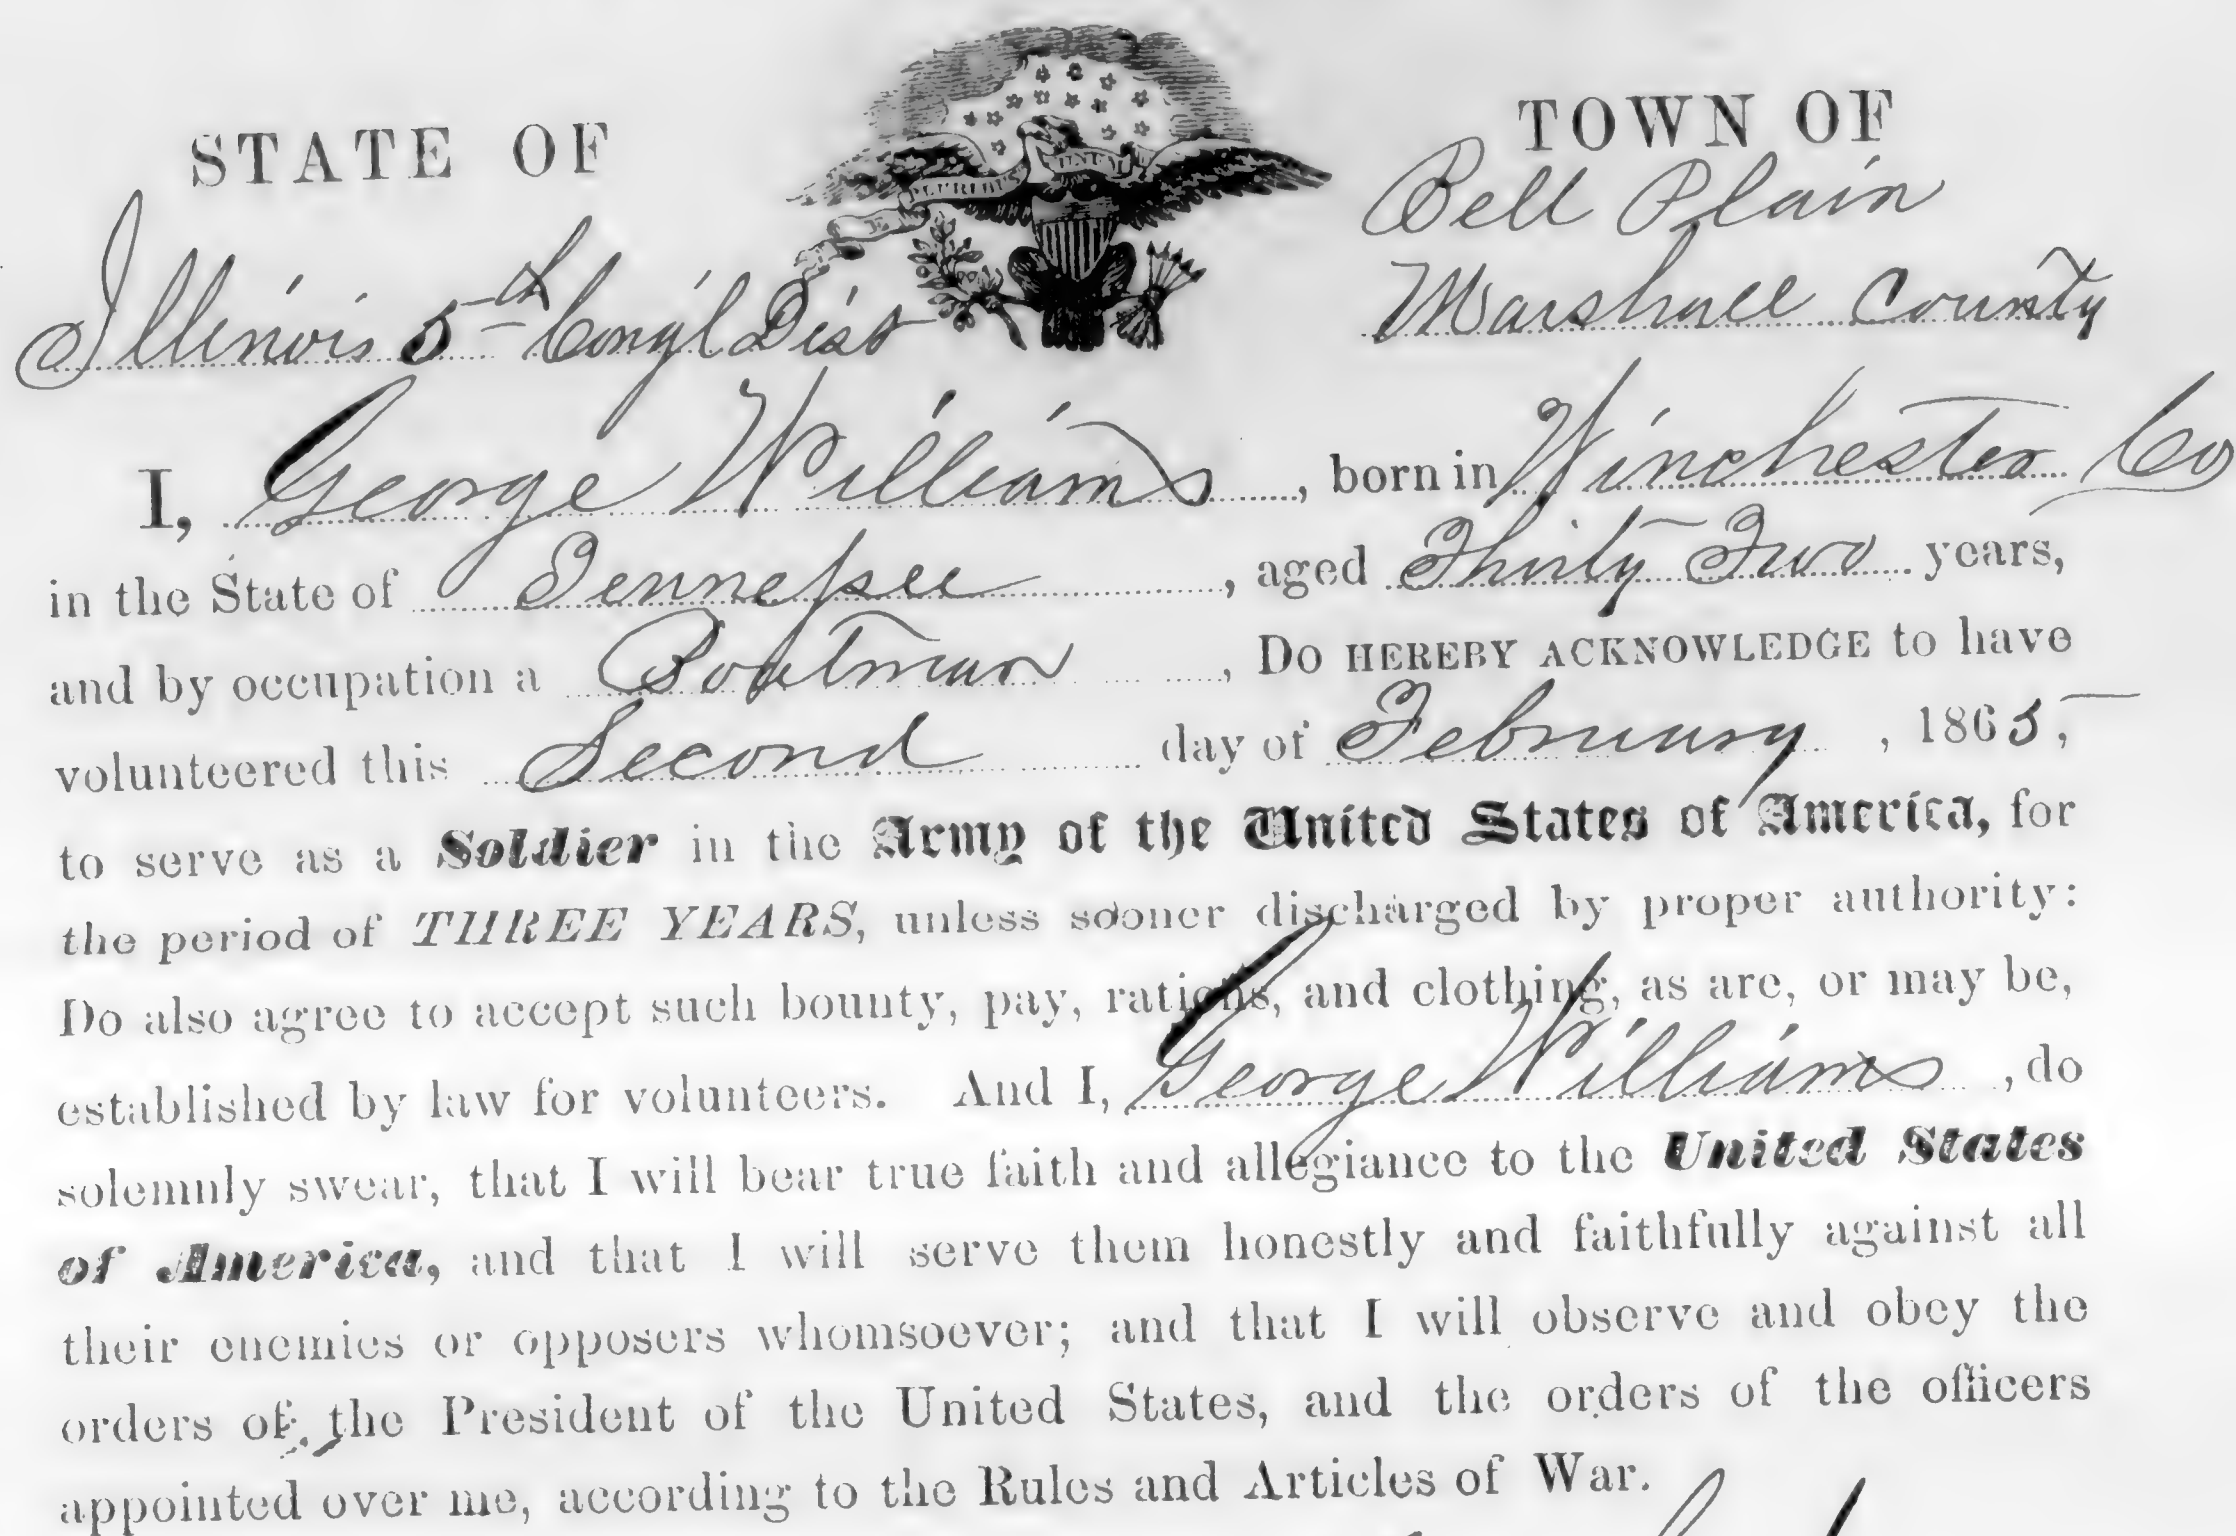 STATE OF
TOWN OF
Bell Plain
Illinois 5th Cong'l Dist
Marshall County
I, George Williams, born in Winchester Co
in the State of Tennessee, aged Thirty Two years,
and by occupation a Boatman, Do HEREBY ACKNOWLEDGE to have
volunteered this Second day of February, 1865,
to serve as a Soldier in the Army of the United States of America, for
the period of THREE YEARS, unless sooner discharged by proper authority:
Do also agree to accept such bounty, pay, rations, and clothing, as are, or may be,
established by law for volunteers. And I, George Williams, do
solemnly swear, that I will bear true faith and allegiance to the United States
of America, and that I will serve them honestly and faithfully against all
their enemies or opposers whomsoever; and that I will observe and obey the
orders of the President of the United States, and the orders of the officers
appointed over me, according to the Rules and Articles of War.